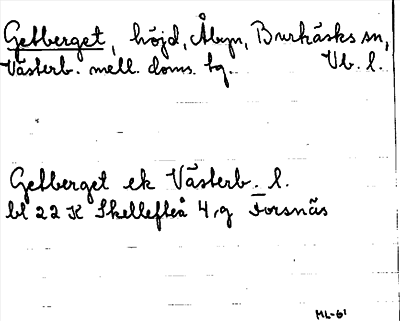 Getberget, höjd, Åbyn, Burträsks sn,
Västerb. mell. doms. tg. Vb. l.
Getberget ek Västerb. l.
bl 22 K Skellefteå 4,g Forsnäs
ML-61